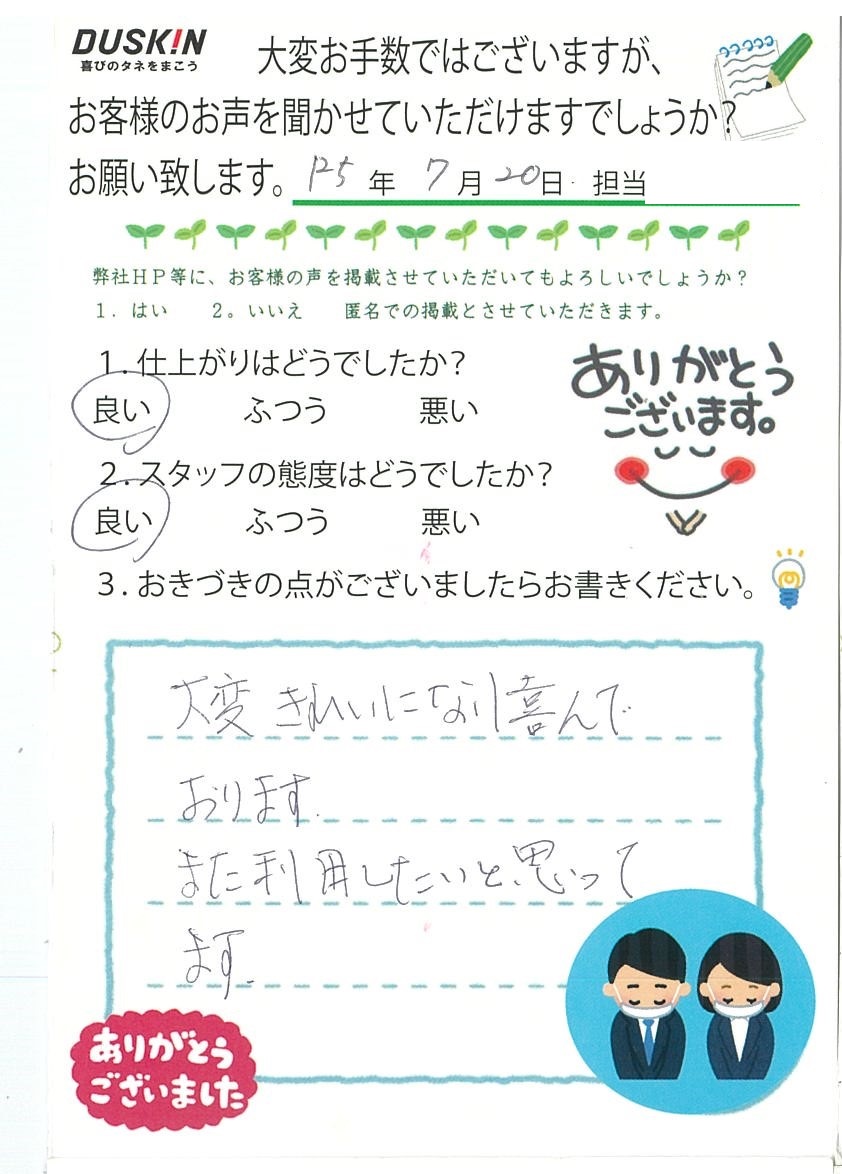 DUSKIN
喜びのタネをまこう
大変お手数ではございますが、
お客様のお声を聞かせていただけますでしょうか？
お願い致します。R5年 7月20日 担当
弊社HP等に、お客様の声を掲載させていただいてもよろしいでしょうか？
１．はい　２。いいえ　匿名での掲載とさせていただきます。
１．仕上がりはどうでしたか？
良い　ふつう　悪い
ありがとう
ございます。
２．スタッフの態度はどうでしたか？
良い　ふつう　悪い
３．おきづきの点がございましたらお書きください。
大変きれいになり喜んで
おります.
また利用したいと思って
ます.
ありがとう
ございました